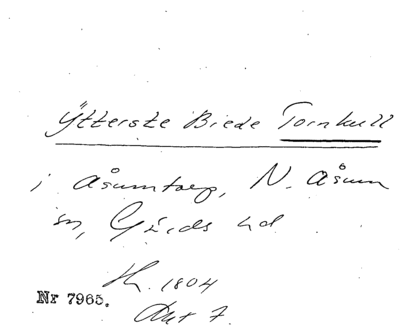 Ytterste Biede Tornkull
i Åsumtorp, N. Åsum
sn, Gärds hd
Hl. 1804
Akt 7
Nr 7965.